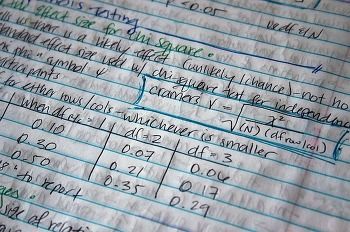 nesis Testing
p<0.05
Vcdf ≤ N
Effect size for chi square:
us if there is a likely effect (unlikely | chance) - not ho
standard effect size used w/ chi-square test for independence
symbol φ
participants
Cramers V = √ x² / (N) (df row/col)
either rows/cols - whichever is smaller
when df r/c = 1 df = 2 df = 3
0.10 0.07 0.06
0.30 0.21 0.17
0.50 0.35 0.29
to report
size of relati